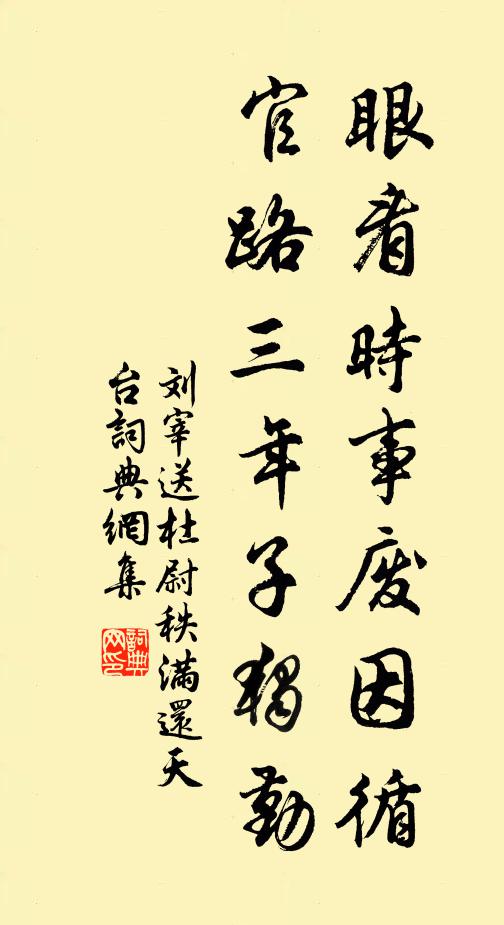 眼看時事废因循
官路三年子獨勤
刘宰送杜尉秩满還天
台詞典網集
詞典网印